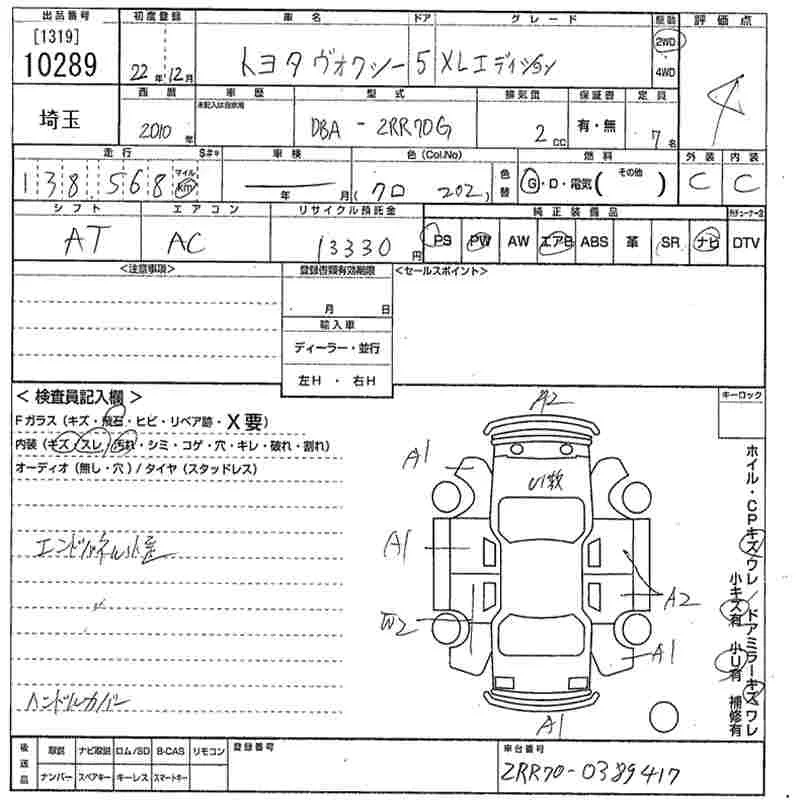 出品番号 初度登録 車名 ドア グレード 駆動 評価点
[1319]
10289 22年12月 トヨタ ヴォクシー 5 XLエディション 2WD 4WD 4
埼玉 西暦 車歴 型式 排気量 保証書 定員
未記入は自家用
2010年 DBA-ZRR70G 2cc 有・無 7名
走行 S#キ 車検 色(Col.No) 燃料 外装 内装
138,568 マイル km 年 月 (クロ 202) 色替 G・D・電気(その他) C C
シフト エアコン リサイクル預託金 純正装備品
AT AC 13330円 PS PW AW エアB ABS 革 SR ナビ DTV
<注意事項> 登録書類有効期限 <セールスポイント>
月 日
輸入車
ディーラー・並行
左H ・ 右H
<検査員記入欄> キーロック
Fガラス(キズ・飛石・ヒビ・リペア跡・X要)
内装(キズ・スレ・汚れ・シミ・コゲ・穴・キレ・破れ・割れ)
オーディオ(無し・穴)/タイヤ(スタッドレス)
A2
A1
U1数
A1
エンドパネル小
A2
W2
A1
ハンドルカバー
A1
ホイル・CPキズワレ/ドアミラーキズワレ
小キズ有 小U有 補修有
後送品 取説 ナビ取説 ロム/SD B-CAS リモコン 登録番号 車台番号
ナンバー スペアキー キーレス スマートキー ZRR70-0389417